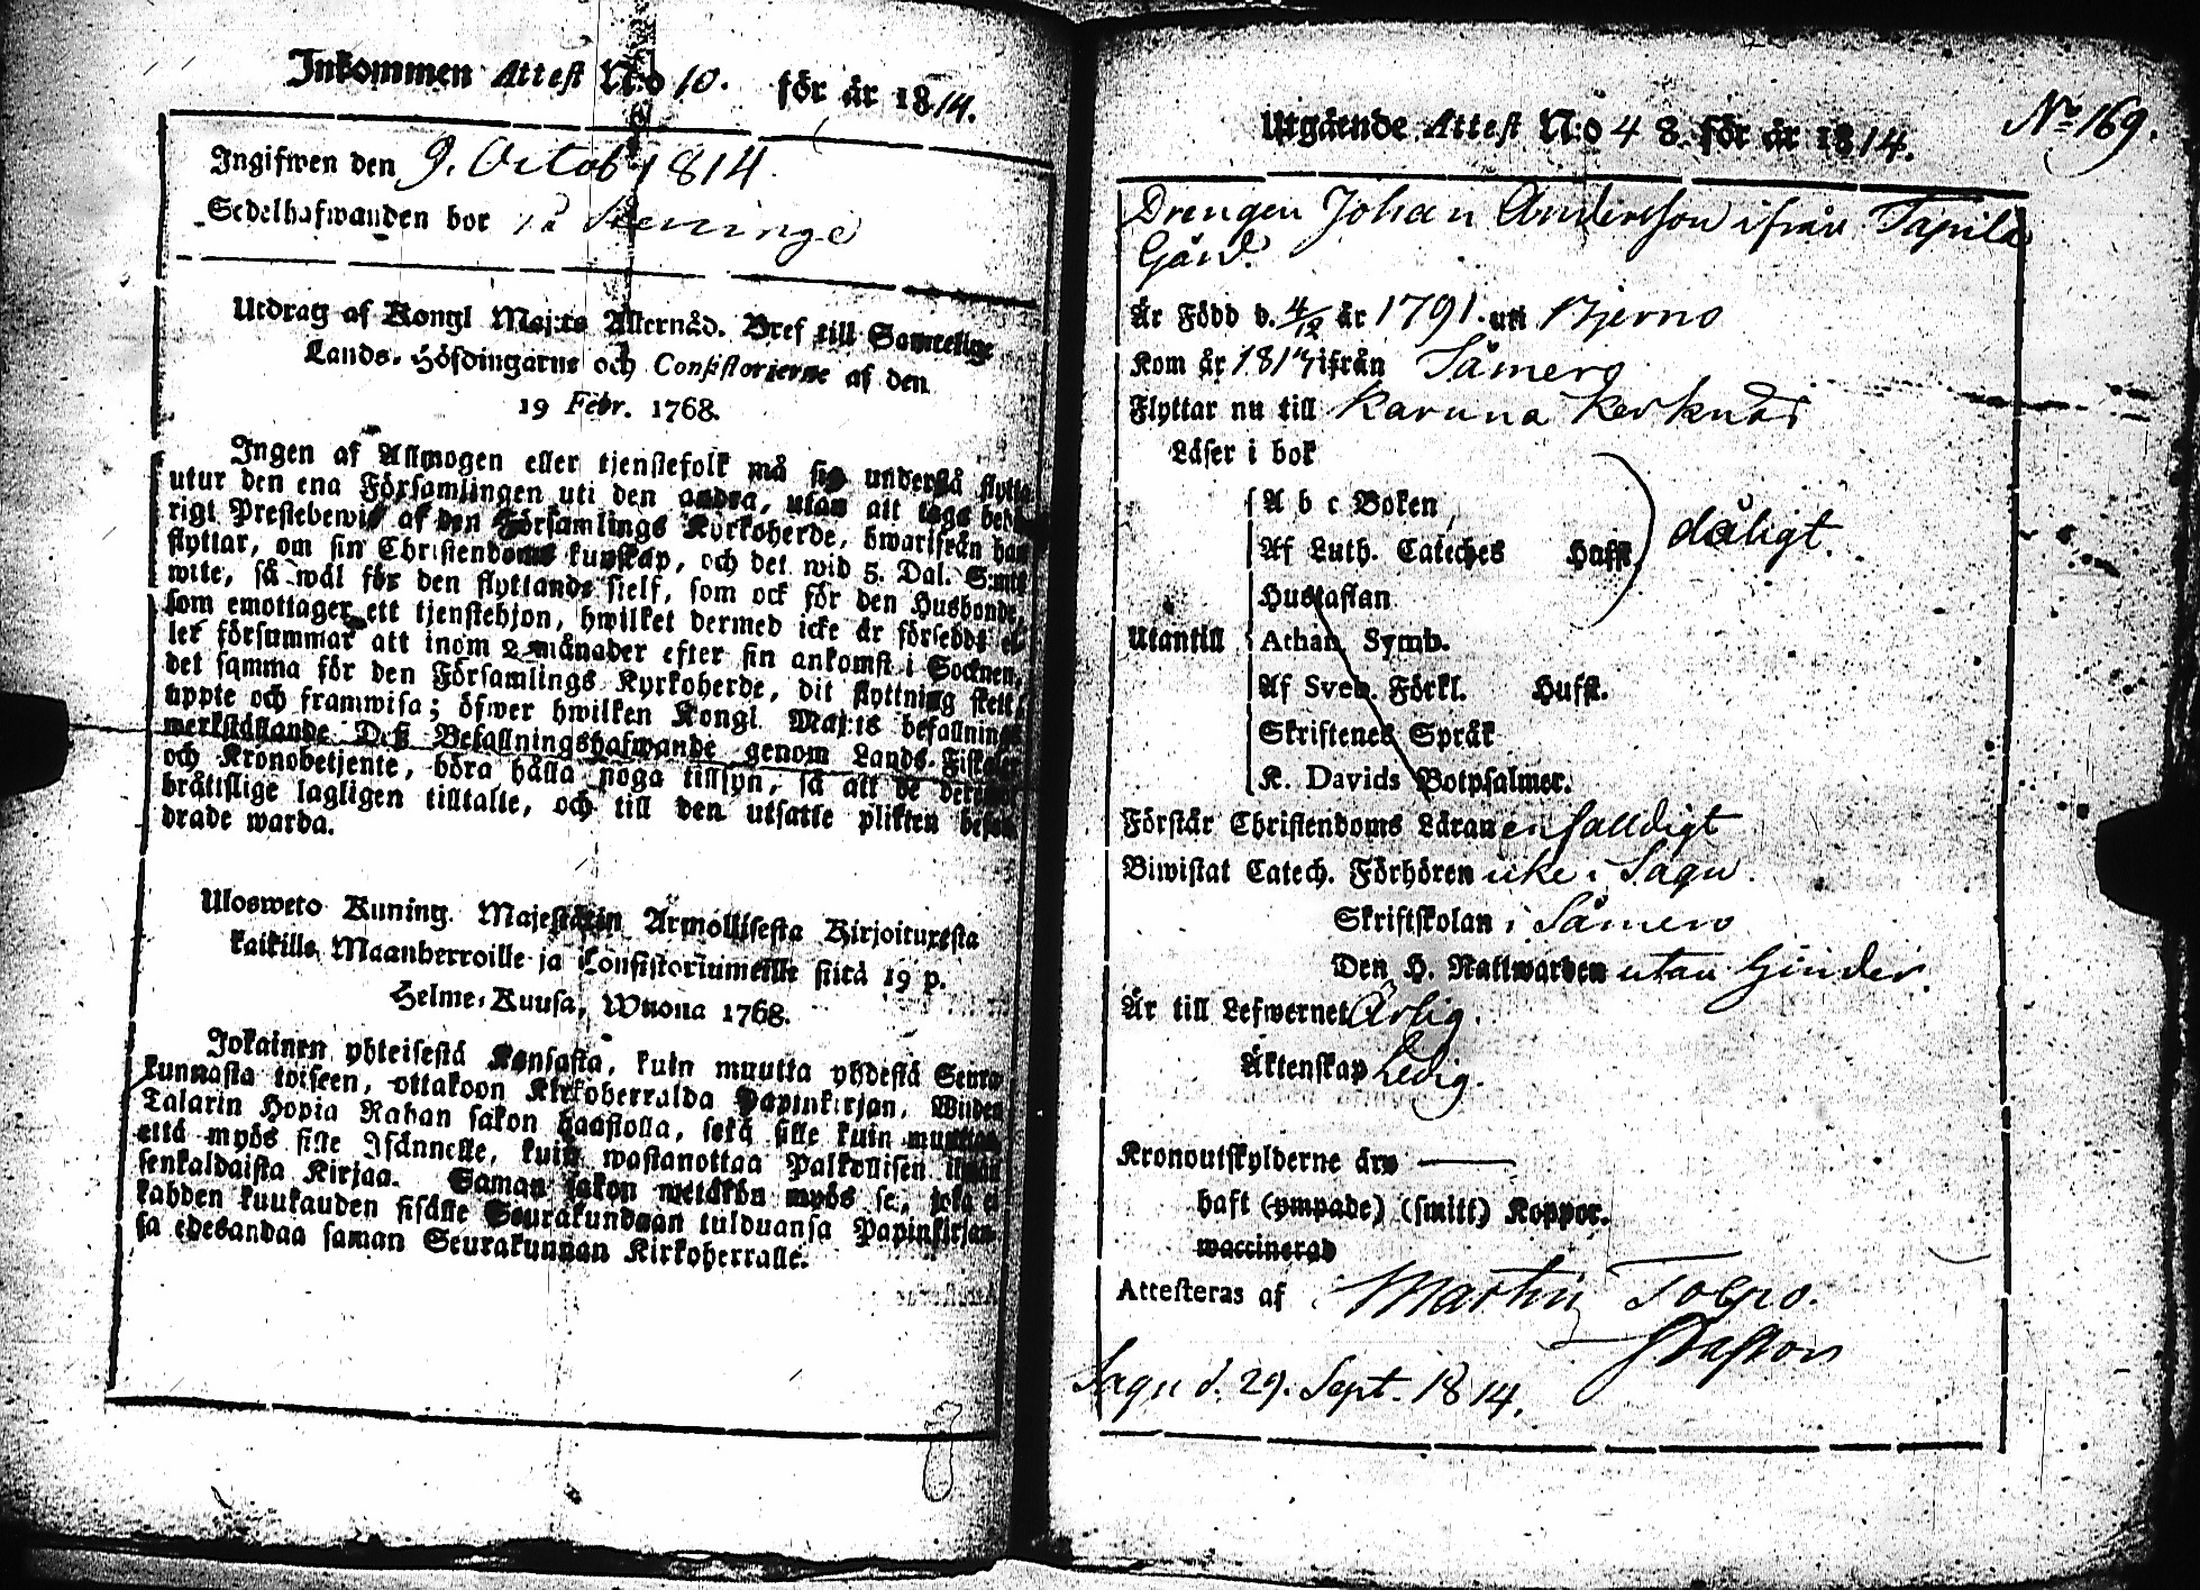 Inkommen Attest N:o 10. för år 1814.
Ingifwen den 9. Octob 1814.
Sedelhafwanden bor
Utdrag af Kongl Maj:ts Allernåd. Bref till Samtelige
Lands-Höfdingarne och Consistorierne af den
19 Febr. 1768.
Ingen af Allmogen eller tjenstefolk må sig understå flytta
utur den ena Församlingen uti den andra, utan att taga behö-
rigt Prestebewis af den Församlings Kyrkoherde, hwarifrån han
flyttar, om sin Christendoms kunskap, och det wid 5. Dal. S:mts
wite, så wäl för den flyttande sielf, som ock för den Husbonde,
som emottager ett tjenstehjon, hwilket dermed icke är försedt el-
ler försummar att inom 2 månader efter sin ankomst i Socknen,
det samma för den Församlings Kyrkoherde, dit flyttning skett,
uppte och framwisa; öfwer hwilken Kongl. Maj:ts befallnings
werkställande Deß Befallningshafwande genom Lands-Fiskaler
och Kronobetjente, böra hålla noga tillsyn, så att de
bråttslige lagligen tilltalte, och till den utsatte plikten befor-
drade warda.
Ulosweto Kuning. Majestätin Armollisesta Kirjoituxesta
kaikille Maanherroille ja Consistoriumeille siitä 19 p.
Helme-Kuusa, Wuona 1768.
Jokainen yhteisestä Kansasta, kuin muutta yhdestä Seura-
kunnasta toiseen, ottakoon Kirkoherralda Papinkirjan, Wiiden
Talarin Hopia Rahan sakon haastolla, sekä sille kuin muuttaa,
että myös sille Isännelle, kuin wastanottaa Palkollisen ilman
senkaldaista Kirjaa. Saman sakon wetäkön myös se, joka ei
kahden kuukauden sisälle Seurakundaan tulduansa Papinkirjan-
sa edesandaa saman Seurakunnan Kirkoherralle.
No 169.
Utgående Attest N:o 48. för år 1814.
Drengen Johan Andersson ifrån Tapila
Gård.
Är Född d. 4/12 år 1791. uti Bjerno
Kom år 181 ifrån Såmero
Flyttar nu till Karuna Kerknäs
Läser i bok
A b c Boken,
Af Luth. Cateches Hufst. dåligt.
Hustaflan
Utantill Athan. Symb.
Af Sveb. Förkl. Hufst.
Skriftenes Språk
K. Davids Botpsalmer.
Förstår Christendoms Läran enfalldigt
Biwistat Catech. Förhören icke i Sagu.
Skriftskolan i Såmero
Den H. Nattwarden utan hinder.
Är till Lefwernet Ärlig.
Äktenskap Ledig.
Kronoutskylderne äro —
haft (ympade) (smitt) Koppor.
waccinerad
Attesteras af Martin Tolpo.
Pastor
Sagu d. 29. Sept. 1814.